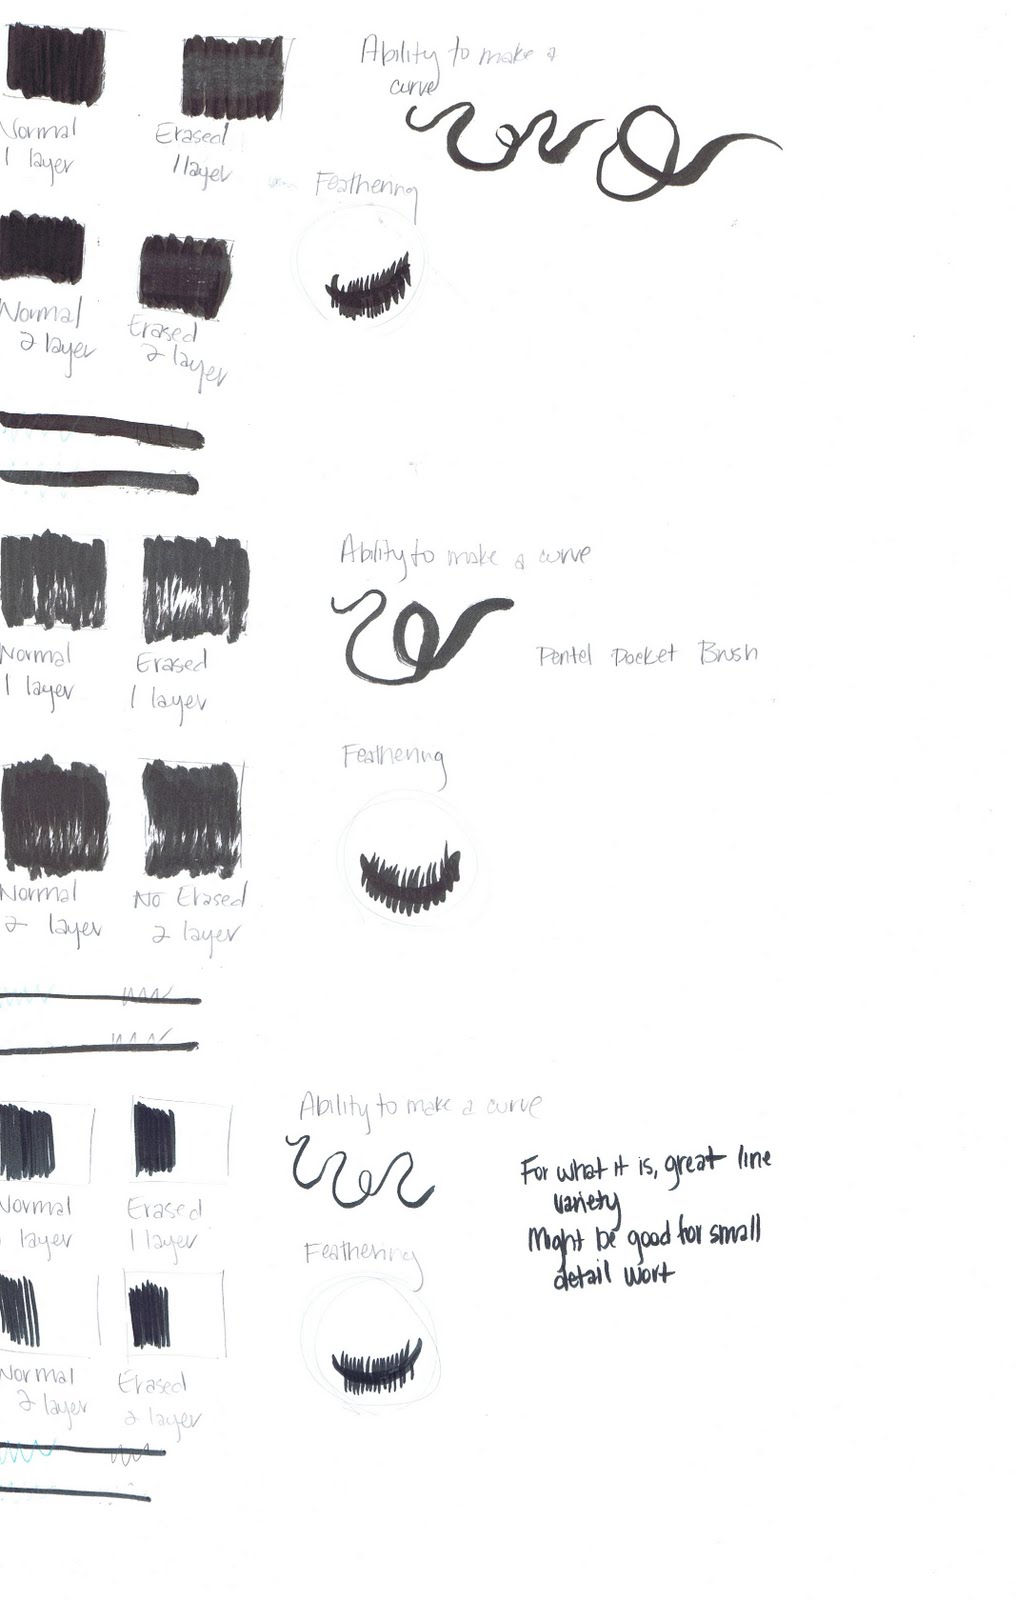 Ability to make a
curve
Normal
1 layer
Erased
1 layer
Feathering
Normal
2 layer
Erased
2 layer
Ability to make a curve
Normal
1 layer
Erased
1 layer
Pentel Pocket Brush
Feathering
Normal
2 layer
No Erased
2 layer
Ability to make a curve
For what it is, great line
variety
Might be good for small
detail work
Normal
layer
Erased
1 layer
Feathering
Normal
2 layer
Erased
2 layer